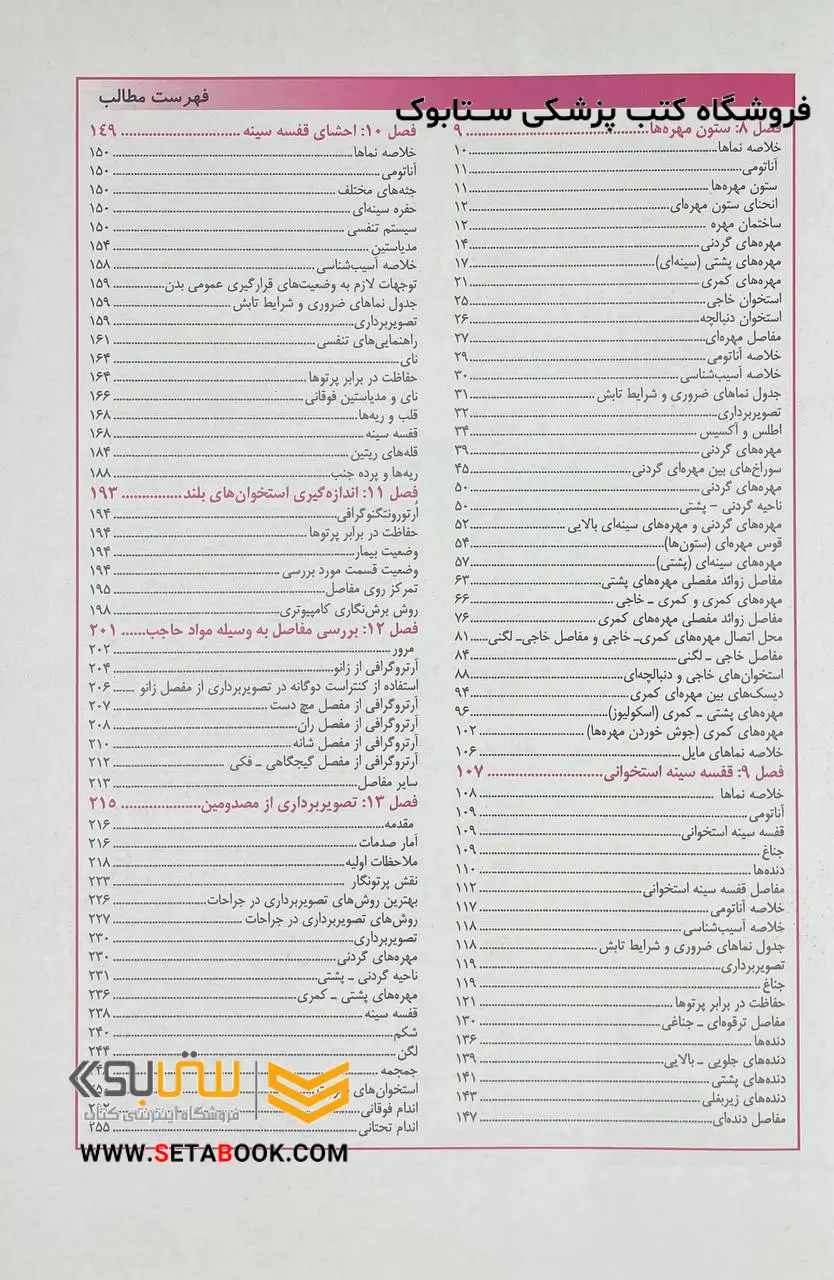 فهرست مطالب
فروشگاه کتب پزشکی ستابوک
فصل ۸: ستون مهره‌ها ۹
خلاصه نماها ۱۰
آناتومی ۱۱
ستون مهره‌ها ۱۱
انحنای ستون مهره‌ای ۱۲
ساختمان مهره ۱۲
مهره‌های گردنی ۱۴
مهره‌های پشتی (سینه‌ای) ۱۷
مهره‌های کمری ۲۱
استخوان خاجی ۲۵
استخوان دنبالچه ۲۶
مفاصل مهره‌ای ۲۷
خلاصه آناتومی ۲۹
خلاصه آسیب‌شناسی ۳۰
جدول نماهای ضروری و شرایط تابش ۳۱
تصویربرداری ۳۲
اطلس و آکسیس ۳۴
مهره‌های گردنی ۳۹
سوراخ‌های بین مهره‌ای گردنی ۴۵
مهره‌های گردنی ۵۰
ناحیه گردنی – پشتی ۵۰
مهره‌های گردنی و مهره‌های سینه‌ای بالایی ۵۲
قوس مهره‌ای (ستون‌ها) ۵۴
مهره‌های سینه‌ای (پشتی) ۵۷
مفاصل زوائد مفصلی مهره‌های پشتی ۶۳
مهره‌های کمری و کمری ـ خاجی ۶۶
مفاصل زوائد مفصلی مهره‌های کمری ۷۶
محل اتصال مهره‌های کمری‌ـ خاجی و مفاصل خاجی‌ـ لگنی ۸۱
مفاصل خاجی ـ لگنی ۸۴
استخوان‌های خاجی و دنبالچه‌ای ۸۸
دیسک‌های بین مهره‌ای کمری ۹۴
مهره‌های پشتی ـ کمری (اسکولیوز) ۹۶
مهره‌های کمری (جوش خوردن مهره‌ها) ۱۰۲
خلاصه نماهای مایل ۱۰۶
فصل ۹: قفسه سینه استخوانی ۱۰۷
خلاصه نماها ۱۰۸
آناتومی ۱۰۹
قفسه سینه استخوانی ۱۰۹
جناغ ۱۰۹
دنده‌ها ۱۱۰
مفاصل قفسه سینه استخوانی ۱۱۲
خلاصه آناتومی ۱۱۷
خلاصه آسیب‌شناسی ۱۱۸
جدول نماهای ضروری و شرایط تابش ۱۱۸
تصویربرداری ۱۱۹
جناغ ۱۱۹
حفاظت در برابر پرتوها ۱۲۱
مفاصل ترقوه‌ای ـ جناغی ۱۳۰
دنده‌ها ۱۳۶
دنده‌های جلویی ـ بالایی ۱۳۹
دنده‌های پشتی ۱۴۱
دنده‌های زیربغلی ۱۴۳
مفاصل دنده‌ای ۱۴۷
فصل ۱۰: احشای قفسه سینه ۱۴۹
خلاصه نماها ۱۵۰
آناتومی ۱۵۰
جثه‌های مختلف ۱۵۰
حفره سینه‌ای ۱۵۰
سیستم تنفسی ۱۵۰
مدیاستین ۱۵۴
خلاصه آسیب‌شناسی ۱۵۸
توجهات لازم به وضعیت‌های قرارگیری عمومی بدن ۱۵۹
جدول نماهای ضروری و شرایط تابش ۱۵۹
تصویربرداری ۱۵۹
راهنمایی‌های تنفسی ۱۶۱
نای ۱۶۴
حفاظت در برابر پرتوها ۱۶۴
نای و مدیاستین فوقانی ۱۶۶
قلب و ریه‌ها ۱۶۸
قفسه سینه ۱۶۸
قله‌های ریتین ۱۸۴
ریه‌ها و پرده جنب ۱۸۸
فصل ۱۱: اندازه‌گیری استخوان‌های بلند ۱۹۳
اُرتورونتگنوگرافی ۱۹۴
حفاظت در برابر پرتوها ۱۹۴
وضعیت بیمار ۱۹۴
وضعیت قسمت مورد بررسی ۱۹۴
تمرکز روی مفاصل ۱۹۵
روش برش‌نگاری کامپیوتری ۱۹۸
فصل ۱۲: بررسی مفاصل به وسیله مواد حاجب ۲۰۱
مرور ۲۰۲
آرتروگرافی از زانو ۲۰۴
استفاده از کنتراست دوگانه در تصویربرداری از مفصل زانو ۲۰۶
آرتروگرافی از مفصل مچ دست ۲۰۷
آرتروگرافی از مفصل ران ۲۰۸
آرتروگرافی از مفصل شانه ۲۱۰
آرتروگرافی از مفصل گیجگاهی ـ فکی ۲۱۲
سایر مفاصل ۲۱۳
فصل ۱۳: تصویربرداری از مصدومین ۲۱۵
مقدمه ۲۱۶
آمار صدمات ۲۱۶
ملاحظات اولیه ۲۱۸
نقش پرتونگار ۲۲۳
بهترین روش‌های تصویربرداری در جراحات ۲۲۶
روش‌های تصویربرداری در جراحات ۲۲۷
تصویربرداری ۲۳۰
مهره‌های گردنی ۲۳۰
ناحیه گردنی ـ پشتی ۲۳۱
مهره‌های پشتی ـ کمری ۲۳۶
قفسه سینه ۲۳۸
شکم ۲۴۰
لگن ۲۴۴
جمجمه
استخوان‌های
اندام فوقانی
اندام تحتانی ۲۵۵
ستابوک
فروشگاه اینترنتی کتاب
WWW.SETABOOK.COM